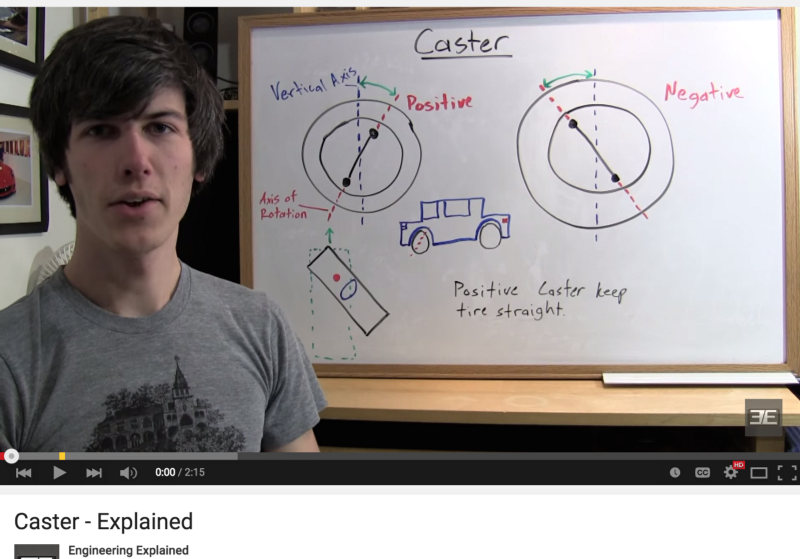 Caster
Vertical Axis
Positive
Negative
Axis of
Rotation
Positive Caster keep
tire straight.
EE
0:00 / 2:15
CC
HD
Caster - Explained
Engineering Explained